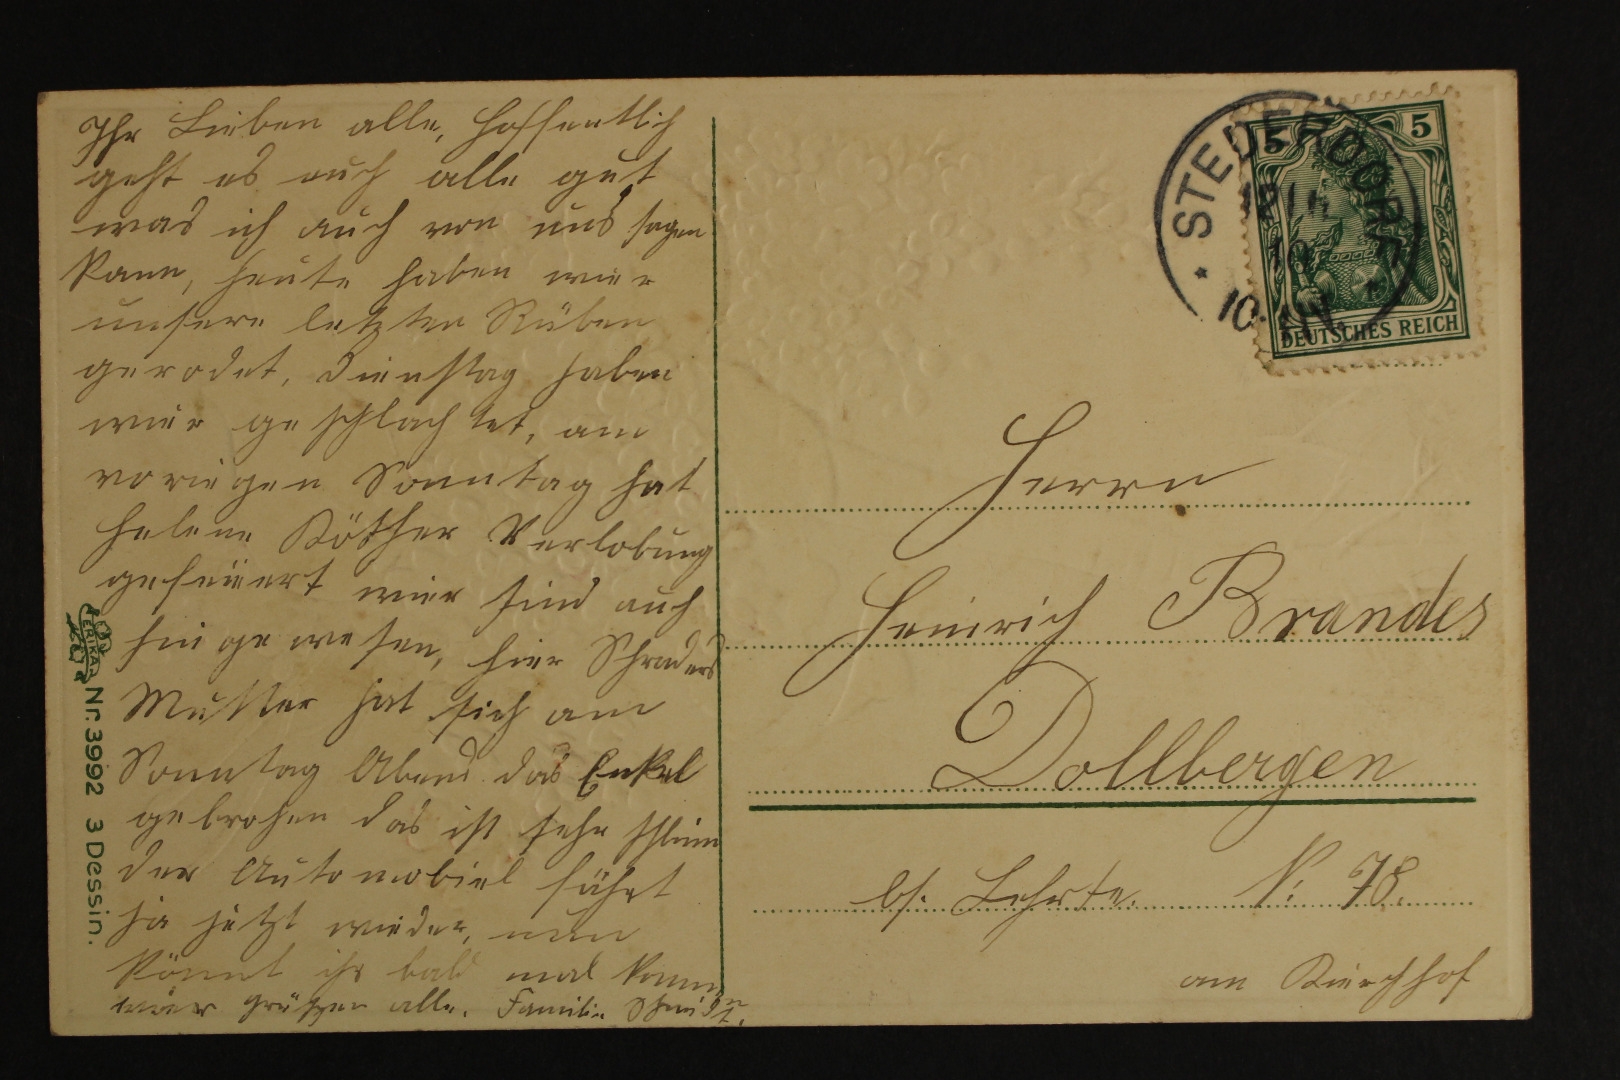 Ihr Lieben alle, hoffentlich
geht es euch alle gut
was ich auch von uns sagen
kann, heute haben wier
unsere letzten Rüben
gerodet, Dienstag haben
wier geschlachtet, am
voriegen Sonntag hat
Helene Köther Verlobung
gefeiert wier sind auch
hin gewesen, hier Schraders
Mutter hat sich am
Sonntag Abend das Enkel
gebrohen das ist sehr schlim
der Automobiel fährt
ja jetzt wieder, nun
könnt ihr bald mal komm
wier grüßen alle. Familie Schmidt.
ERIKA
Nr. 3992 3 Dessin.
STEDERDORF
10
10-11
5 5
DEUTSCHES REICH
Herrn
Heinrich Brandes
Dollbergen
bs. Lehrte. N: 78.
am Kierchhof